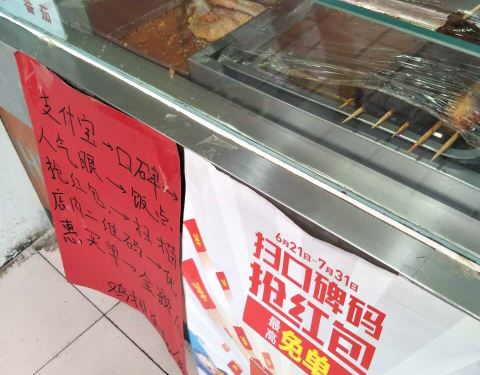 支付宝→口碑→
人气眼→饭点
抢红包→扫描
店内二维码→有
惠买单→金额
鸡排
6月21日-7月31日
扫口碑码
抢红包
最高免单